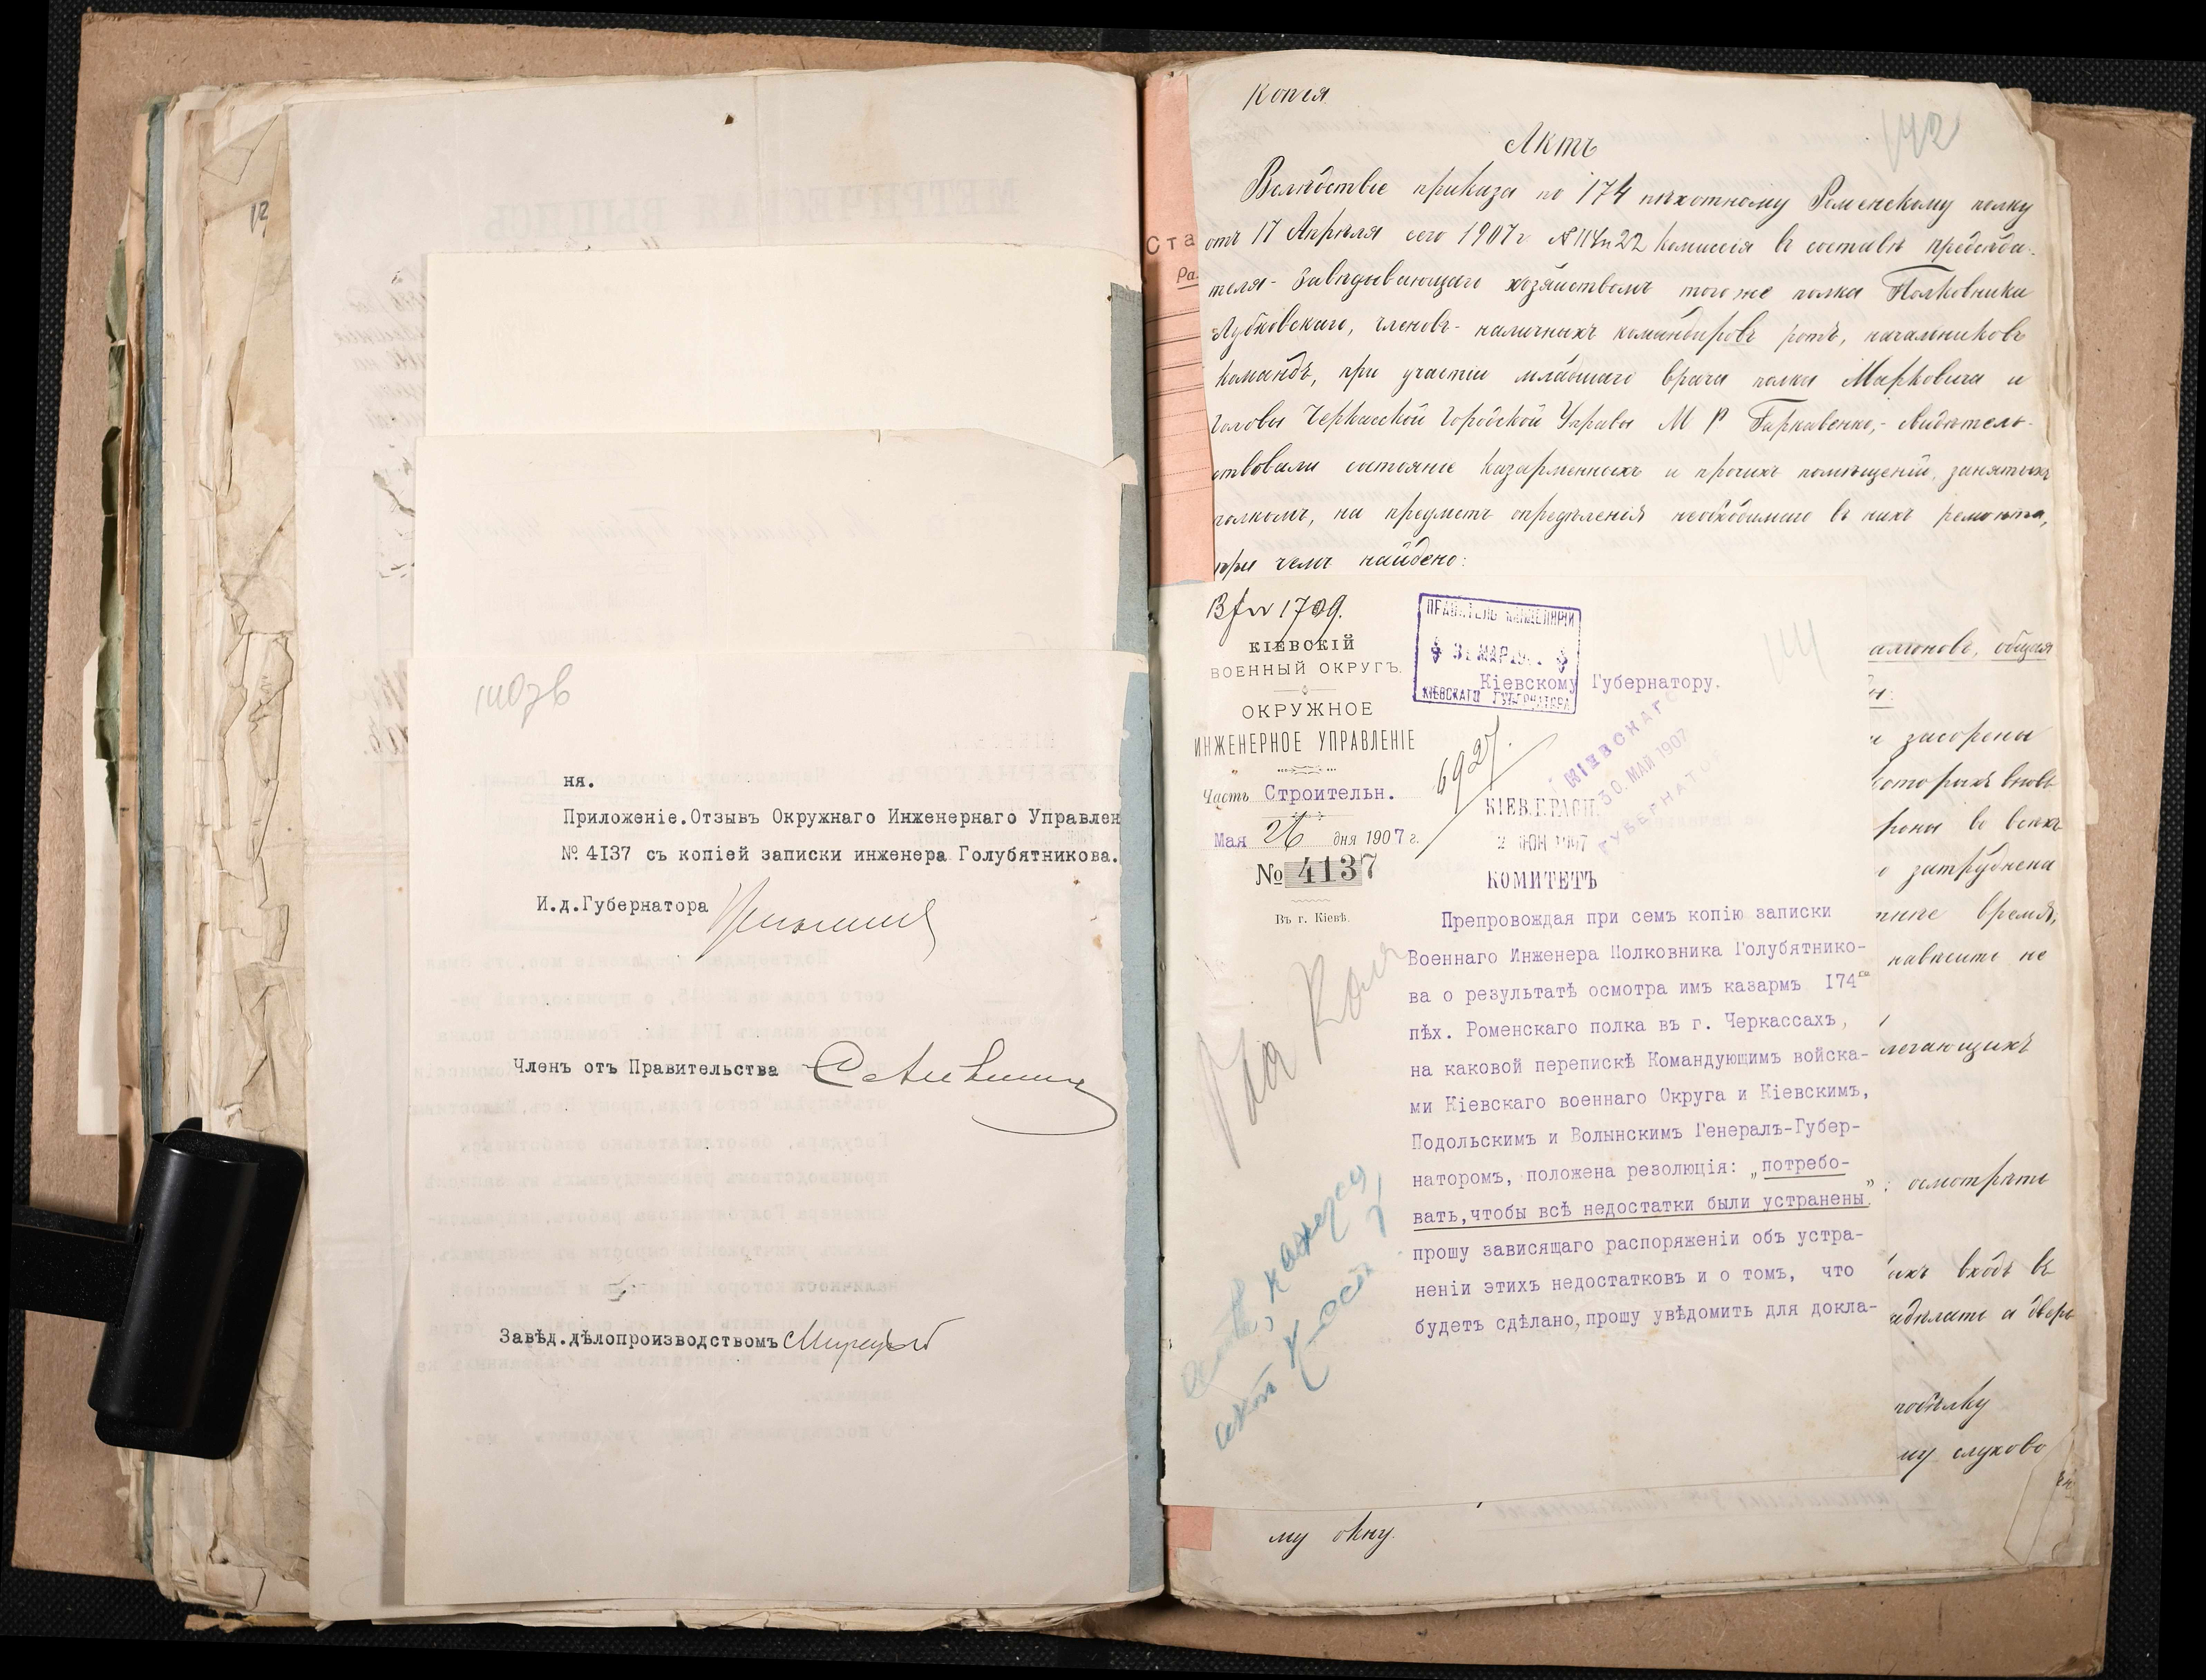 ня.
Приложеніе.Отзывъ Окружнаго Инженернаго Управлен
№ 4137 съ копіей записки инженера Голубятникова.
И.д.Губернатора
Членъ отъ Правительства
Завѣд.дѣлопроизводствомъ
Копія
142
Актъ
Вслѣдствіе приказа по 174 пѣхотному Роменскому полку
отъ 17 Апрѣля сего 1907 г. комиссія въ составѣ предсѣда-
теля - Завѣдывающаго хозяйствомъ того же полка Полковника
Лубковскаго, членовъ - наличныхъ командировъ ротъ, начальниковъ
командъ, при участіи младшаго врача полка Марковича и
Головы Черкасской Городской Управы М Р Гаркавенко, - свидѣтель-
ствовали состояніе казарменныхъ и прочихъ помѣщеній, занятыхъ
полкомъ, на предметъ опредѣленія необходимаго въ нихъ ремонта,
при чемъ найдено:
Ста
Ра
1709.
КІЕВСКІЙ
ВОЕННЫЙ ОКРУГЪ.
ОКРУЖНОЕ
ИНЖЕНЕРНОЕ УПРАВЛЕНІЕ
Часть Строительн.
Мая 26 дня 1907 г.
№ 4137
Въ г. Кіевѣ.
ПРАВИТЕЛЬ КАНЦЕЛЯРІИ
31 МАР
КІЕВСКАГО ГУБЕРНАТОРА
Кіевскому Губернатору.
6927.
КІЕВСКАГО
30. МАЙ 1907
ГУБЕРНАТО
КІЕВ.Г.РАСП.
2 ІЮН 1907
КОМИТЕТЪ
Препровождая при семъ копію записки
Военнаго Инженера Полковника Голубятнико-
ва о результатѣ осмотра имъ казармъ 174го
пѣх. Роменскаго полка въ г. Черкассахъ,
на каковой перепискѣ Командующимъ войска-
ми Кіевскаго военнаго Округа и Кіевскимъ,
Подольскимъ и Волынскимъ Генералъ-Губер-
наторомъ, положена резолюція: „потребо-
вать,чтобы всѣ недостатки были устранены"
прошу зависящаго распоряженіи объ устра-
неніи этихъ недостатковъ и о томъ, что
будетъ сдѣлано,прошу увѣдомить для докла-
общая
засорены
которыхъ вновь
во всѣхъ
затруднена
время,
не
легающихъ
осмотрѣть
входъ въ
адѣлать а дверь
му слухово
му окну.